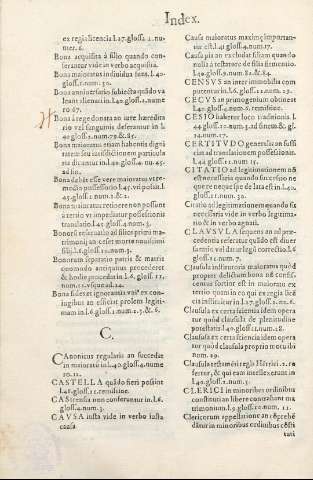 Index.
ex regia licentia l.27. gloss. 2. nu-
mer. 6.
Bona acquisita à filio quando con-
ferantur vide in verbo acquisita.
Bona maioratus individua sunt. l.40.
gloss. 2. num. 30.
Bona anniversario subiecta quãdo va
leant alienari in l.40. gloss. 2. nume
ro 67.
Bona à rege donata an iure hæredita
rio vel sanguinis deferantur in l.
40. gloss. 2. num. 79. & 85.
Bona maioratus etiam habentis digni
tatem seu iurisdictionem particula
ria dicantur in l.40. gloss. 4. nu. 45.
ad fin.
Bona debet esse vere maioratus vt re-
medio possessorio l.45. vti possit. l.
45. gloss. 1. num. 1. & 2.
Bona maioratus retinere non possunt
à tertio vt impediatur possessionis
translatio l.45. gloss. 1. num. 3.
Bonorum reservatio ad filios primi ma-
trimonij an cesset morte nouissimi
filij l.15. gloss. 12. num. 5.
Bonorum separatio patris & matris
quomodo antiquitus procederet
& hodie procedat in l.6. gloss. 11.
num. 15. vsque ad 24.
Bona fides et ignorantia vnius ex con-
iugibus an efficiat prolem legiti-
mam in l.6. gloss. 1. num. 5. & 6.
C.
CAnonicus regularis an succedat
in maioratu in l.40. gloss. 4. nume
ro. 11.
CASTELLA quãdo fieri possint
l.46. gloss. 11. remissive.
CAStrensia non conferantur in l.6.
gloss. 4. num. 3.
CAVSA iusta vide in verbo iusta
causa
Causæ maioratus maximę importan-
tiæ est l.41. gloss. 4. num. 17.
Causa pia an excludat filium quando
nulla à testatore de filiis sit mentio.
l.40. gloss. 2. num. 82. & 84.
CENSVS an inter immobilia com
putentur in l.6. gloss. 11. num. 25.
CECVS an primogenium obtineat
l.40. gloss. 4. num. 6. remissive.
CESIO habet ne locum traditionis l.
44. gloss. 2. num. 3. ad finem & gl.
24. num. 17.
CERTITVDO generalis an suffi
ciat ad translationem possessionis.
l.44. gloss. 11. num. 15.
CITATIO ad legitimationem nõ
est necessaria quando successio com
pete re spe delata est in l.40.
gloss. 11. num. 30.
Citatio ad legitimationem quando sit
necessaria vide in verbo legitima-
tio & in verbo agnati.
CLAVSVLA sequens an ad præ
cedentia referatur quãdo est diuer
sa materies vel datur lege correctio l.6
gloss. 11. num. 7.
Clausula institutoris maioratus quod
propter delictum bona non confis-
centur sortiet est in maioratu ex
tertio num in co qui ex regia lice
tia instituitur in l.27. gloss. 2. nu. 6.
Clausula ex certa scientia idem opera
tur quod clausula de plenitudine
potestatis l.40. gloss. 11. num. 18.
Clausula ex certa scientia idem opera
tur quod clausula proprio motu ibi
num. 29.
Clausula testamẽti regis Henrici. 2. re
fertur, & qui eam intellexerunt in
l.40. gloss. 2. num. 2.
CLERICI in minoribus ordinibus
constituti an libere contrahant ma
trimonium l.9. gloss. 20. num. 11.
Clericorum appellatione an cõprehẽ
dãtur in minoribus ordinibus cõsti
tuti